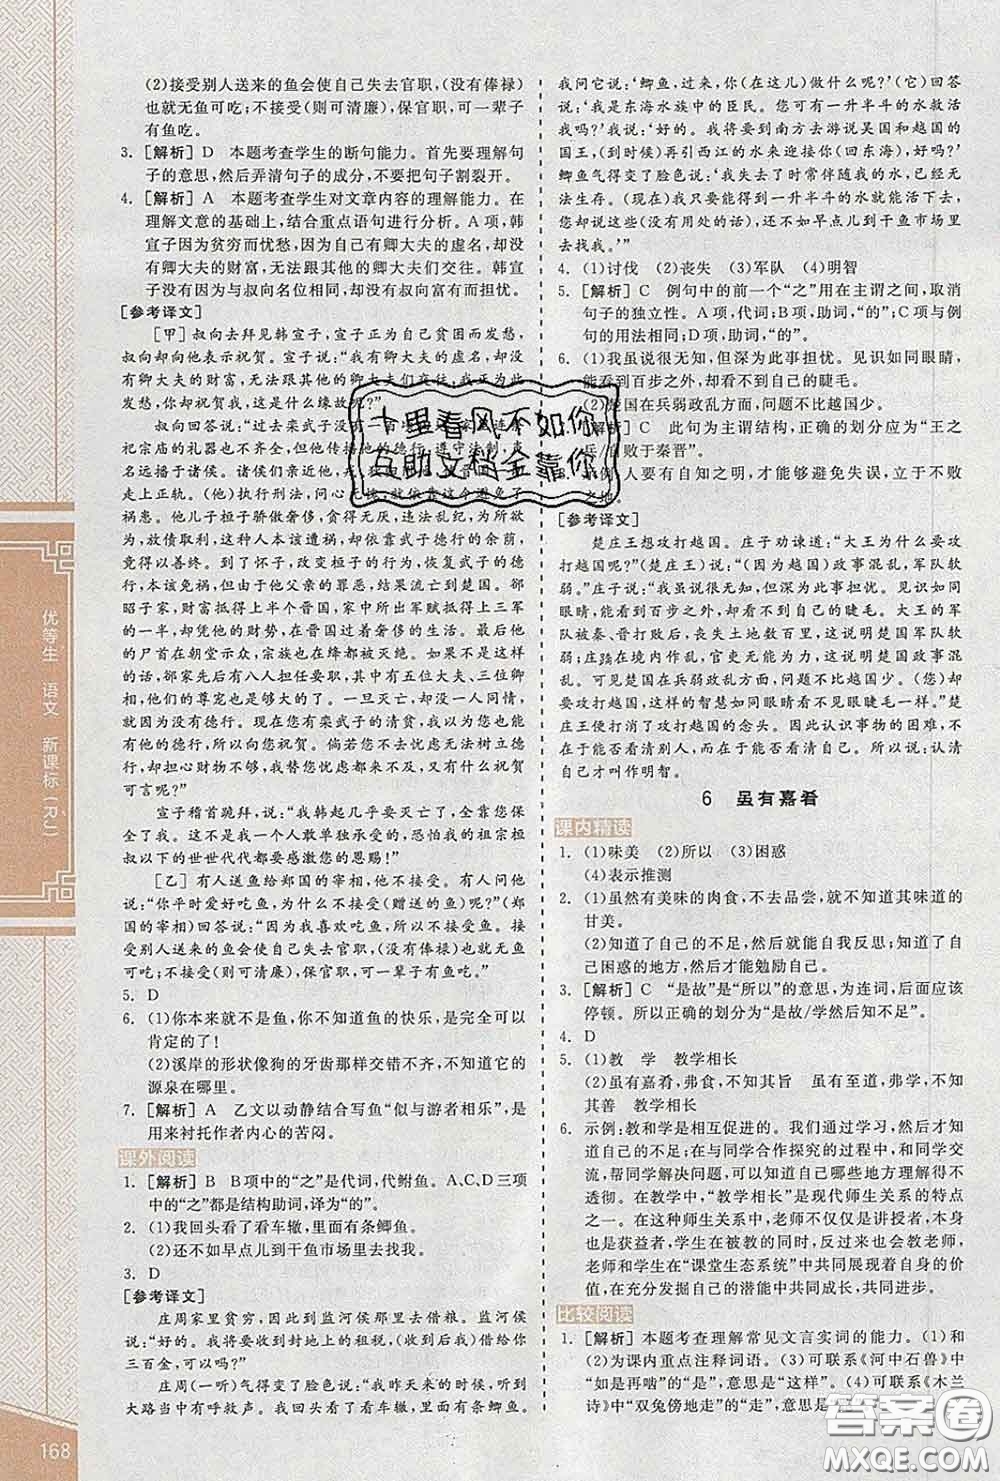 (2)接受别人送来的鱼会使自己失去官职,(没有俸禄)
也就无鱼可吃;不接受(则可清廉),保官职,可一辈子
有鱼吃。
3. [解析] D 本题考查学生的断句能力。首先要理解句
子的意思,然后弄清句子的成分,不要把句子割裂开。
4. [解析] A 本题考查学生对文章内容的理解能力。在
理解文意的基础上,结合重点语句进行分析。A项,韩
宣子因为贫穷而忧愁,因为自己有卿大夫的虚名,却没
有卿大夫的财富,无法跟其他的卿大夫们交往。韩宣
子没有因为与叔向名位相同,却没有叔向富有而担忧。
[参考译文]
[甲] 叔向去拜见韩宣子,宣子正为自己贫困而发愁,
叔向却向他表示祝贺。宣子说:“我有卿大夫的虚名,却没
有卿大夫的财富,无法跟其他的卿大夫们交往,我正为此
发愁,你却祝贺我,这是什么缘故呢?”
叔向回答说:“过去栾武子
祀宗庙的礼器也不齐全,
名远播于诸侯。诸侯们亲近他,
国。(他)执行刑法,问心无愧,就依靠这个避免了
祸患。他儿子桓子骄傲奢侈,贪得无厌,违法乱纪,为所欲
为,放债敛财,这种人本该遭祸,但依靠武子德行的余荫,
得以善终。到了怀子,改变桓子的行为,执行武子的德行,
本该免祸,但由于他父亲的罪恶,结果流亡到楚国。郤
昭子家,财富抵得上晋国公室,家中所出军赋抵得上三军
的一半,却凭他的财势,在晋国过着奢侈的生活。最后他
的尸首在朝堂示众,宗族也在绛都被灭绝。
的话,郤家先后有八人担任要职,有五位大夫、三位卿
相,他们的尊宠也够大了。一旦灭亡,却没有一人同情,
就因没有德行。现在您有栾武子的清贫,我认为您也能有
他的德行,所以向您祝贺。倘若您不忧虑无法树立德行,
却担心财物不足,我哀吊您都来不及,怎么还有什么祝贺
可言呢?”
宣子稽首跪拜,(叔向)说:“我韩起几乎要灭亡了,全靠您保
全了我。这大恩不敢单独承受的,恐怕我的祖宗桓
叔以下的世世代代都要感激您的恩赐!”
[乙] 有人送鱼给郑国的宰相,他不接受。有人问他
说:“你平时爱好吃鱼,为什么不接受(赠送的鱼)呢?”(郑
国的宰相)回答说:“因为我喜欢吃鱼,所以没有接受。
接受别人送来的鱼会使自己失去官职,(没有俸禄)也就无鱼
可吃;不接受(则可清廉),保官职,可一辈子有鱼吃。”
5. D
6. (1)你本来就不是鱼,你不知道鱼的快乐,是完全可以
肯定的了!
(2)溪岸的形状像狗的牙齿那样交错不齐,不知道它的
源泉在哪里。
7. [解析] A 乙文以动静结合写鱼“似与游者相乐”,是
用来衬托作者内心的苦闷。
课外阅读
1. [解析] B B项中的“之”是代词,代鲋鱼。A、C、D三项
中的“之”都是结构助词,译为“的”。
2. (1)我回头看了看车辙,里面有条鲫鱼。
(2)还不如早点儿到干鱼市场里去找我。
3. D
[参考译文]
庄周家里贫穷,因此到监河侯那里去借粮。监河侯
说:“好的。我将要收到封地上的租税,(收到后)我借给你
三百金,可以吗?”
庄周(一听)气得变了脸色说:“我昨天来的时候,听到
大路当中有呼救声。我回头看了看车辙,里面有条鲫鱼。
我问它说:‘鲫鱼,过来,你(在这儿)做什么呢?’(它)回答
说:‘我是东海水族中的臣民。您可有一升半斗的水救活
我吗?’我说:‘好的。我将要到南方去游说吴国和越国的
国王,(到时候)再引西江的水来迎接你(回东海)。’
鲫鱼气得变了脸色说:‘我失去了时常伴随我的水,(已经)
无法生存。(现在)我只要能得到一升半斗的水就能活下去,
您却说这些(没有用处的话),还不如早点儿到干鱼市场里
去找我。’”
4. (1)讨伐 (2)丧失 (3)军队 (4)明智
5. [解析] C 例句中的前一个“之”用在主谓之间,取消
句子的独立性。A项,代词;B项,助词,“的”;C项与例
句的用法相同;D项,助词,“的”。
6. (1)我虽说很无知,但深为此事担忧。见识如同眼睛,
能看到百步之外,却不能看到自己的睫毛。
(2)楚国在兵弱政乱方面,问题不比越国少。
[解析] C 此句为主谓结构,正确的划分应为“王之
兵/自败于秦晋”。
人要有自知之明,才能够避免失误,立于不败
之地。
[参考译文]
楚庄王想攻打越国。庄子劝谏道:“大王为什么要攻
打越国呢?”(楚庄王)说:“(因为越国)政事混乱,军队软
弱。”庄子说:“我虽说很无知,但深为此事担忧。见识如同
眼睛,能看到百步之外,却不能看到自己的睫毛。大王的军
队被秦、晋打败后,丧失土地数百里,这说明楚国军队软
弱。庄蹻在境内作乱,官吏却无能为力,这说明楚国政事混
乱。可见楚国在兵弱政乱方面,问题不比越国少。(您)却
想攻打越国,这样的智慧如同眼睛看不见睫毛一样。”楚
庄王便打消了攻打越国的念头。因此认识事物的困难,不
在于能否看清别人,而在于能否看清自己。所以说:认清
自己才叫作明智。
6 虽有嘉肴
课内精读
1. (1)味美 (2)所以 (3)困惑
(4)表示推测
2. (1)虽然有美味的肉食,不去品尝,就不知道其味道的
甘美。
(2)知道了自己的不足,然后就能自我反思;知道了自
己困惑的地方,然后才能勉励自己。
3. [解析] C “是故”是“所以”的意思,为连词,后面应该
停顿。所以正确的划分为“是故/学然后知不足”。
4. D
5. (1)教 学 教学相长
(2)虽有嘉肴,弗食,不知其旨 虽有至道,弗学,不知
其善 教学相长
6. 示例:教和学是相互促进的。我们通过学习,然后才
知自己的不足;在与同学合作探究的过程中,和同学分
享,帮同学解决问题,可以知道自己哪些地方理解不
透彻。在教学中,“教学相长”是现代师生关系的特点
之一。在这种师生关系中,老师不仅仅是讲授者,本身
也是获益者,学生在被教的同时,也可以教会老师,老
师和学生在“课堂生态系统”中共同展现着自身的价
值,在充分发掘自己的潜能中共同成长,共同进步。
比较阅读
1. [解析] 本题考查理解常见文言实词的能力。(1)和
(2)为课内重点注释词语。(3)可联系《河中石兽》中
“如是再啮”的“是”,意思是“这样”。(4)可联系《木兰
诗》中“双兔傍地走”的“走”,意思是
优等生 语文 新课标(RJ)
168
十里春风不如你
互助文档全靠你
答案圈
MXQE.COM